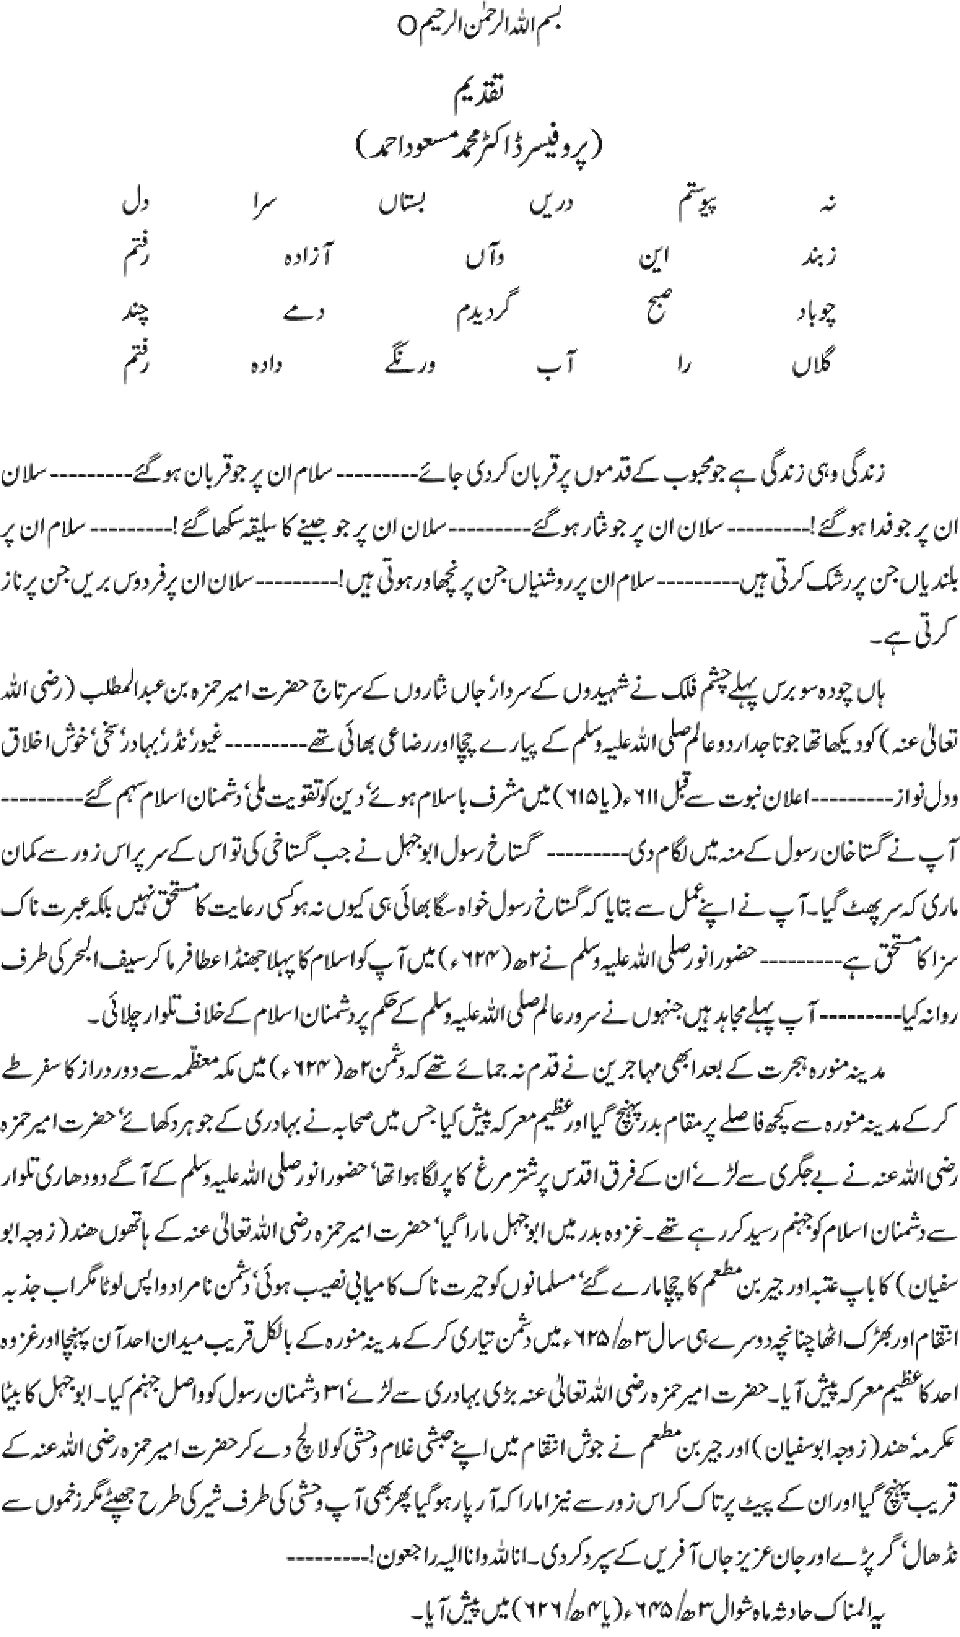 بسم اللہ الرحمٰن الرحیم O
تقدیم
(پروفیسر ڈاکٹر محمد مسعود احمد)
نہ پیوستم دریں بستاں سرا دل
زبند این وآں آزادہ رفتم
چوباد صبح گردیدم دمے چند
گلاں را آب ورنگے دادہ رفتم
زندگی وہی زندگی ہے جو محبوب کے قدموں پر قربان کردی جائے--------- سلام ان پر جو قربان ہوگئے--------- سلان
ان پر جو فدا ہوگئے!--------- سلان ان پر جو نثار ہوگئے---------سلان ان پر جو جینے کا سلیقہ سکھا گئے!--------- سلام ان پر
بلندیاں جن پر رشک کرتی ہیں--------- سلام ان پر روشنیاں جن پر نچھاور ہوتی ہیں!---------سلان ان پر فردوس بریں جن پر ناز
کرتی ہے۔
ہاں چودہ سو برس پہلے چشم فلک نے شہیدوں کے سردار‘ جاں نثاروں کے سرتاج حضرت امیر حمزہ بن عبدالمطلب (رضی اللہ
تعالیٰ عنہ) کو دیکھا تھا جو تاجدار دو عالم صلی اللہ علیہ وسلم کے پیارے چچا اور رضاعی بھائی تھے---------غیور‘ نڈر‘ بہادر‘ سخی‘ خوش اخلاق
ودل نواز---------اعلان نبوت سے قبل ۶۱۱ء (یا ۶۱۵) میں مشرف با سلام ہوئے‘ دین کو تقویت ملی‘ دشمنان اسلام سہم گئے---------
آپ نے گستاخان رسول کے منہ میں لگام دی--------- گستاخ رسول ابوجہل نے جب گستاخی کی تو اس کے سر پر اس زور سے کمان
ماری کہ سر پھٹ گیا۔ آپ نے اپنے عمل سے بتایا کہ گستاخ رسول خواہ سگا بھائی ہی کیوں نہ ہو کسی رعایت کا مستحق نہیں بلکہ عبرت ناک
سزا کا مستحق ہے--------- حضور انور صلی اللہ علیہ وسلم نے ۲ھ (۶۲۴ء) میں آپ کو اسلام کا پہلا جھنڈا عطا فرما کر سیف البحر کی طرف
روانہ کیا--------- آپ پہلے مجاہد ہیں جنہوں نے سرور عالم صلی اللہ علیہ وسلم کے حکم پر دشمنان اسلام کے خلاف تلوار چلائی۔
مدینہ منورہ ہجرت کے بعد ابھی مہاجرین نے قدم نہ جمائے تھے کہ دشمن ۲ھ (۶۲۴ء) میں مکہ معظّمہ سے دور دراز کا سفر طے
کرکے مدینہ منورہ سے کچھ فاصلے پر مقام بدر پہنچ گیا اور عظیم معرکہ پیش کیا جس میں صحابہ نے بہادری کے جوہر دکھائے‘ حضرت امیر حمزہ
رضی اللہ عنہ نے بے جگری سے لڑے‘ ان کے فرق اقدس پر شتر مرغ کا پر لگا ہوا تھا‘ حضور انور صلی اللہ علیہ وسلم کے آگے دو دھاری تلوار
سے دشمنان اسلام کو جہنم رسید کر رہے تھے۔ غزوہ بدر میں ابوجہل مارا گیا‘ حضرت امیر حمزہ رضی اللہ تعالیٰ عنہ کے ہاتھوں ھند (زوجہ ابو
سفیان) کا باپ عتبہ اور جبیر بن مطعم کا چچا مارے گئے‘ مسلمانوں کو حیرت ناک کامیابی نصیب ہوئی‘ دشمن نامراد واپس لوٹا مگر اب جذبہ
انتقام اور بھڑک اٹھا چنانچہ دوسرے ہی سال ۳ھ/۶۲۵ء میں دشمن تیاری کرکے مدینہ منورہ کے بالکل قریب میدان احد آن پہنچا اور غزوہ
احد کا عظیم معرکہ پیش آیا۔ حضرت امیر حمزہ رضی اللہ تعالیٰ عنہ بڑی بہادری سے لڑے‘ ۳۱ دشمنان رسول کو واصل جہنم کیا۔ ابوجہل کا بیٹا
عکرمہ‘ ھند (زوجہ ابوسفیان) اور جبیر بن مطعم نے جوش انتقام میں اپنے حبشی غلام وحشی کو لالچ دے کر حضرت امیر حمزہ رضی اللہ عنہ کے
قریب پہنچ گیا اور ان کے پیٹ پر تاک کر اس زور سے نیزا مارا کہ آر پار ہوگیا پھر بھی آپ وحشی کی طرف شیر کی طرح جھپٹے مگر زخموں سے
نڈھال‘ گر پڑے اور جان عزیز جاں آفریں کے سپرد کردی۔ انا للہ وانا الیہ راجعون!---------
یہ المناک حادثہ ماہ شوال ۳ھ/ ۶۴۵ء (یا ۴ھ/ ۶۲۶) میں پیش آیا۔